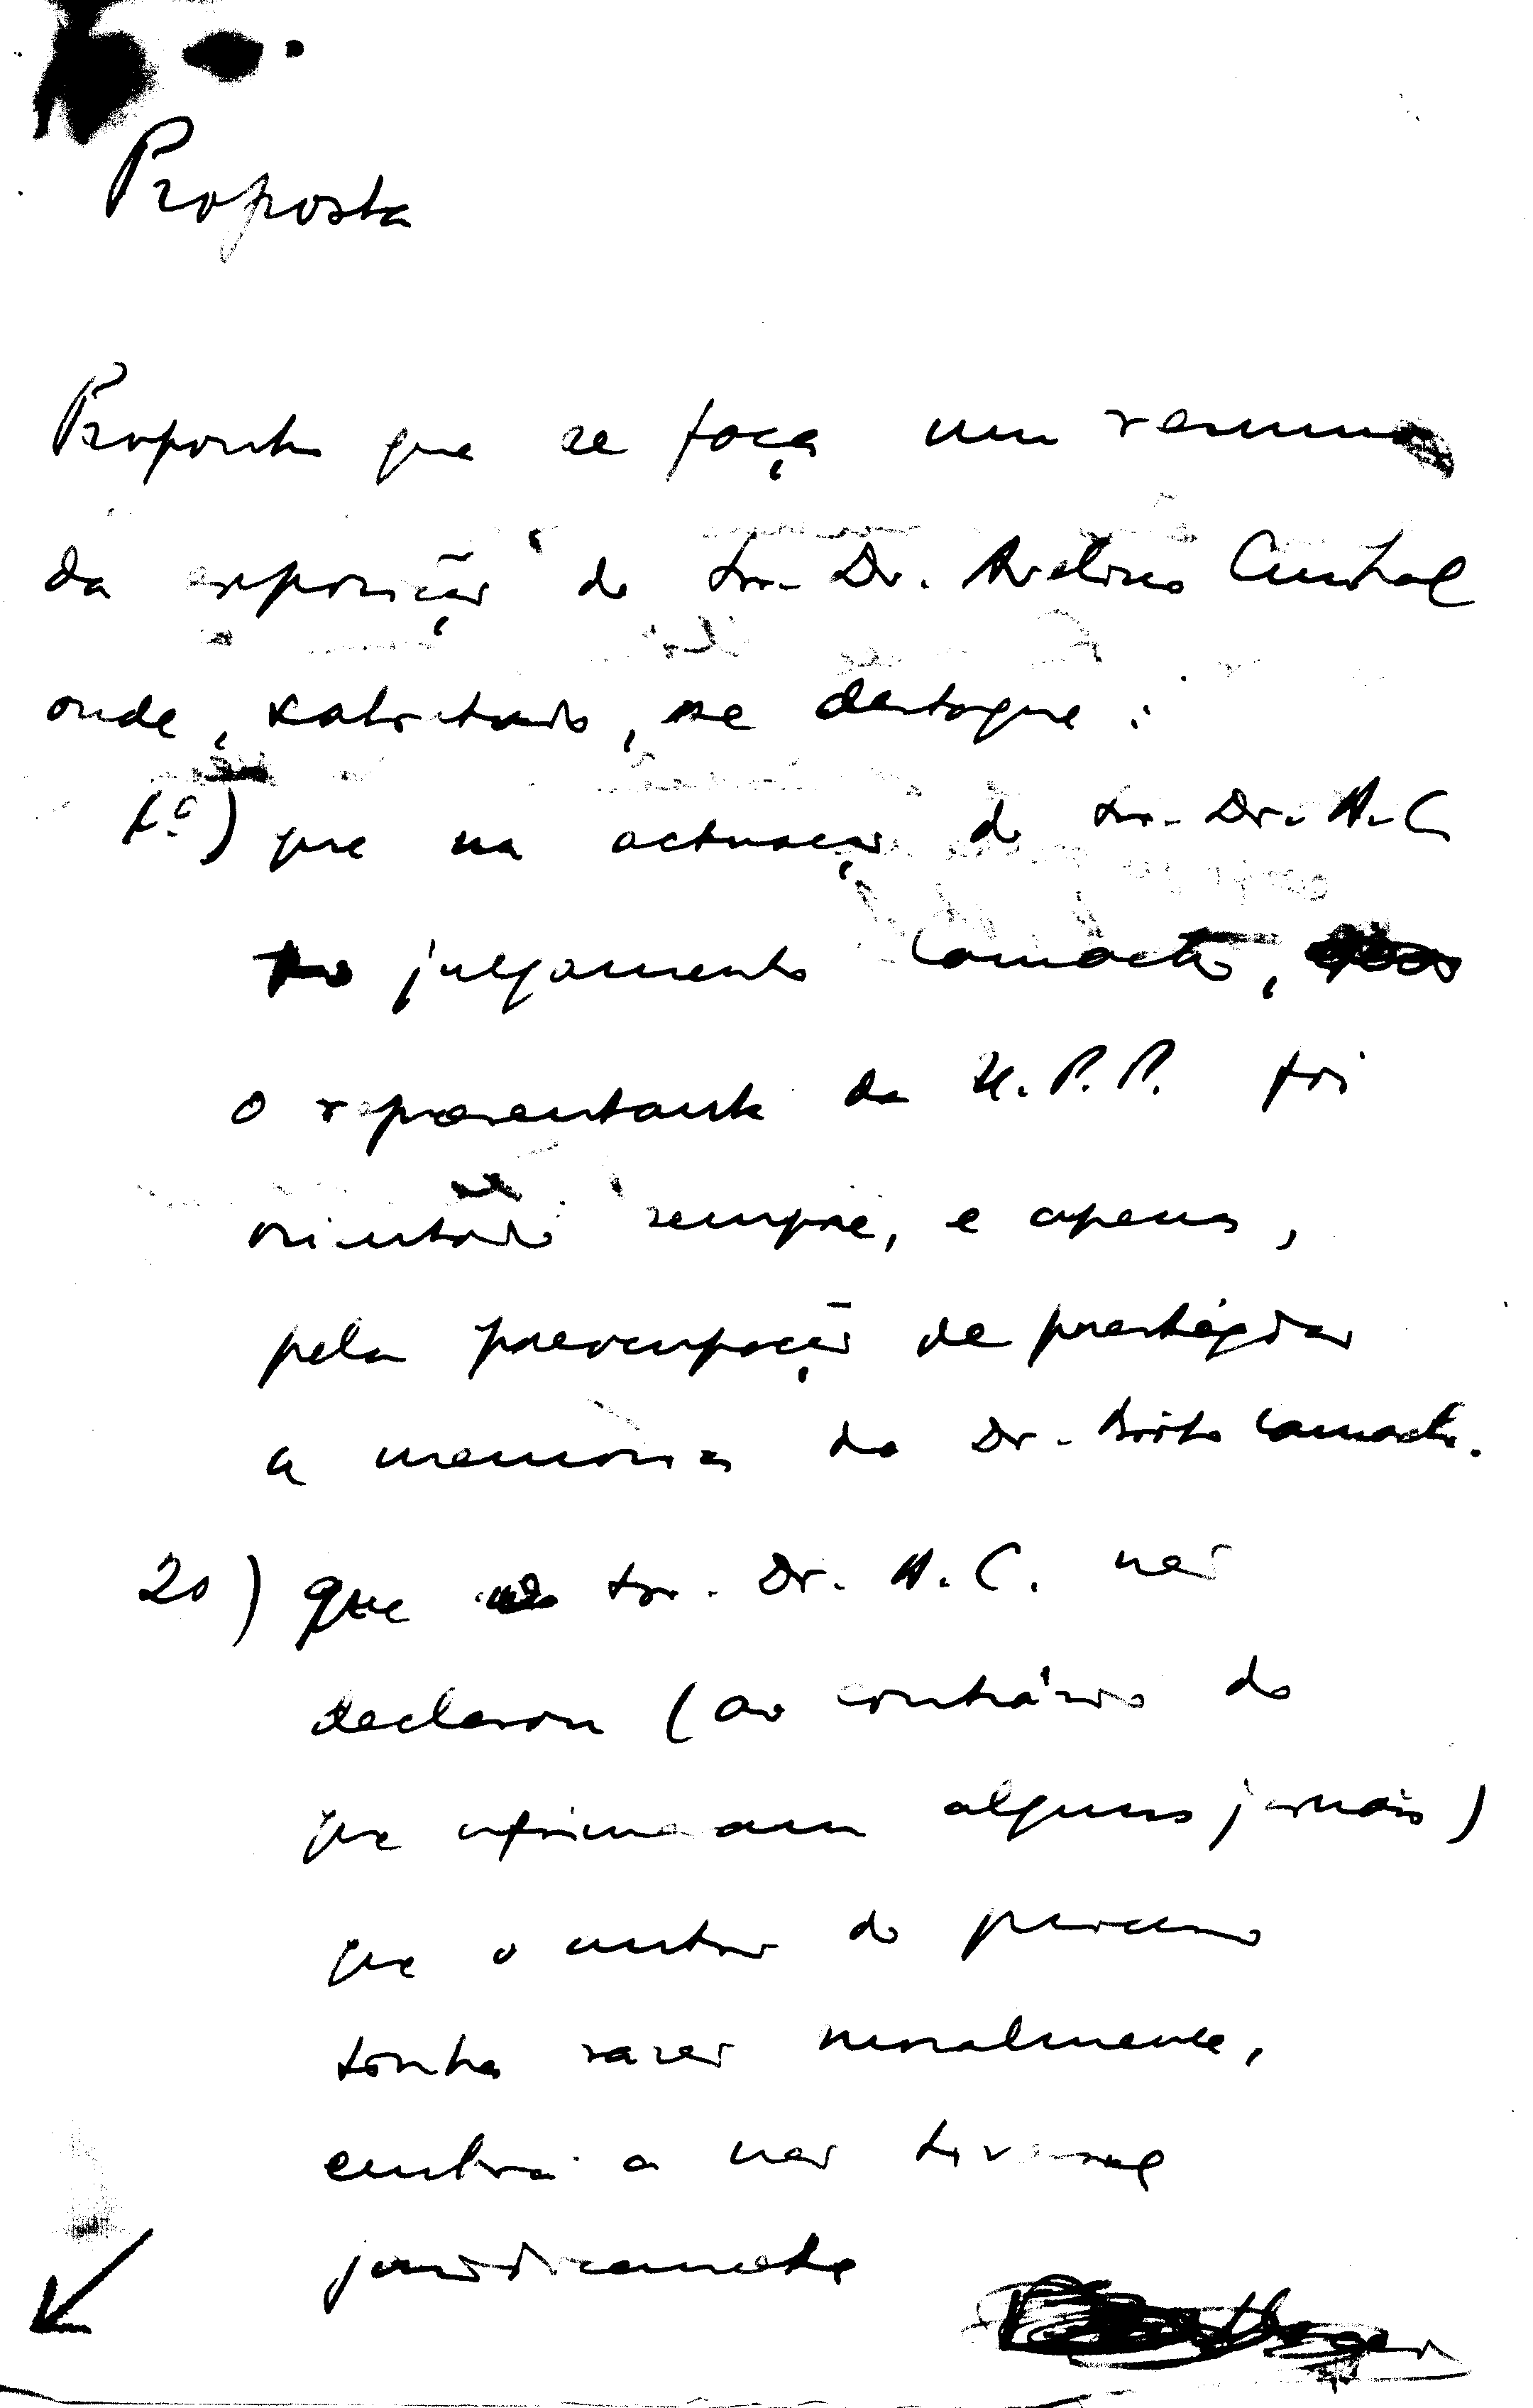 Proposta
Proponho que se faça um resumo
da exposição do Sr. Dr. Avelino Cunhal
onde, sobretudo, se destaque:
1.º) que na actuação do Sr. Dr. A. C.
no julgamento Camacho,
o representante da U.P.P. foi
orientado sempre, e apenas,
pela preocupação de prestigiar
a memória do Dr. Brito Camacho.
2o) que o Sr. Dr. A. C. não
declarou (ao contrário do
que afirmaram alguns jornais)
que o autor do processo
tinha razão moralmente,
embora a não tivesse
juridicamente